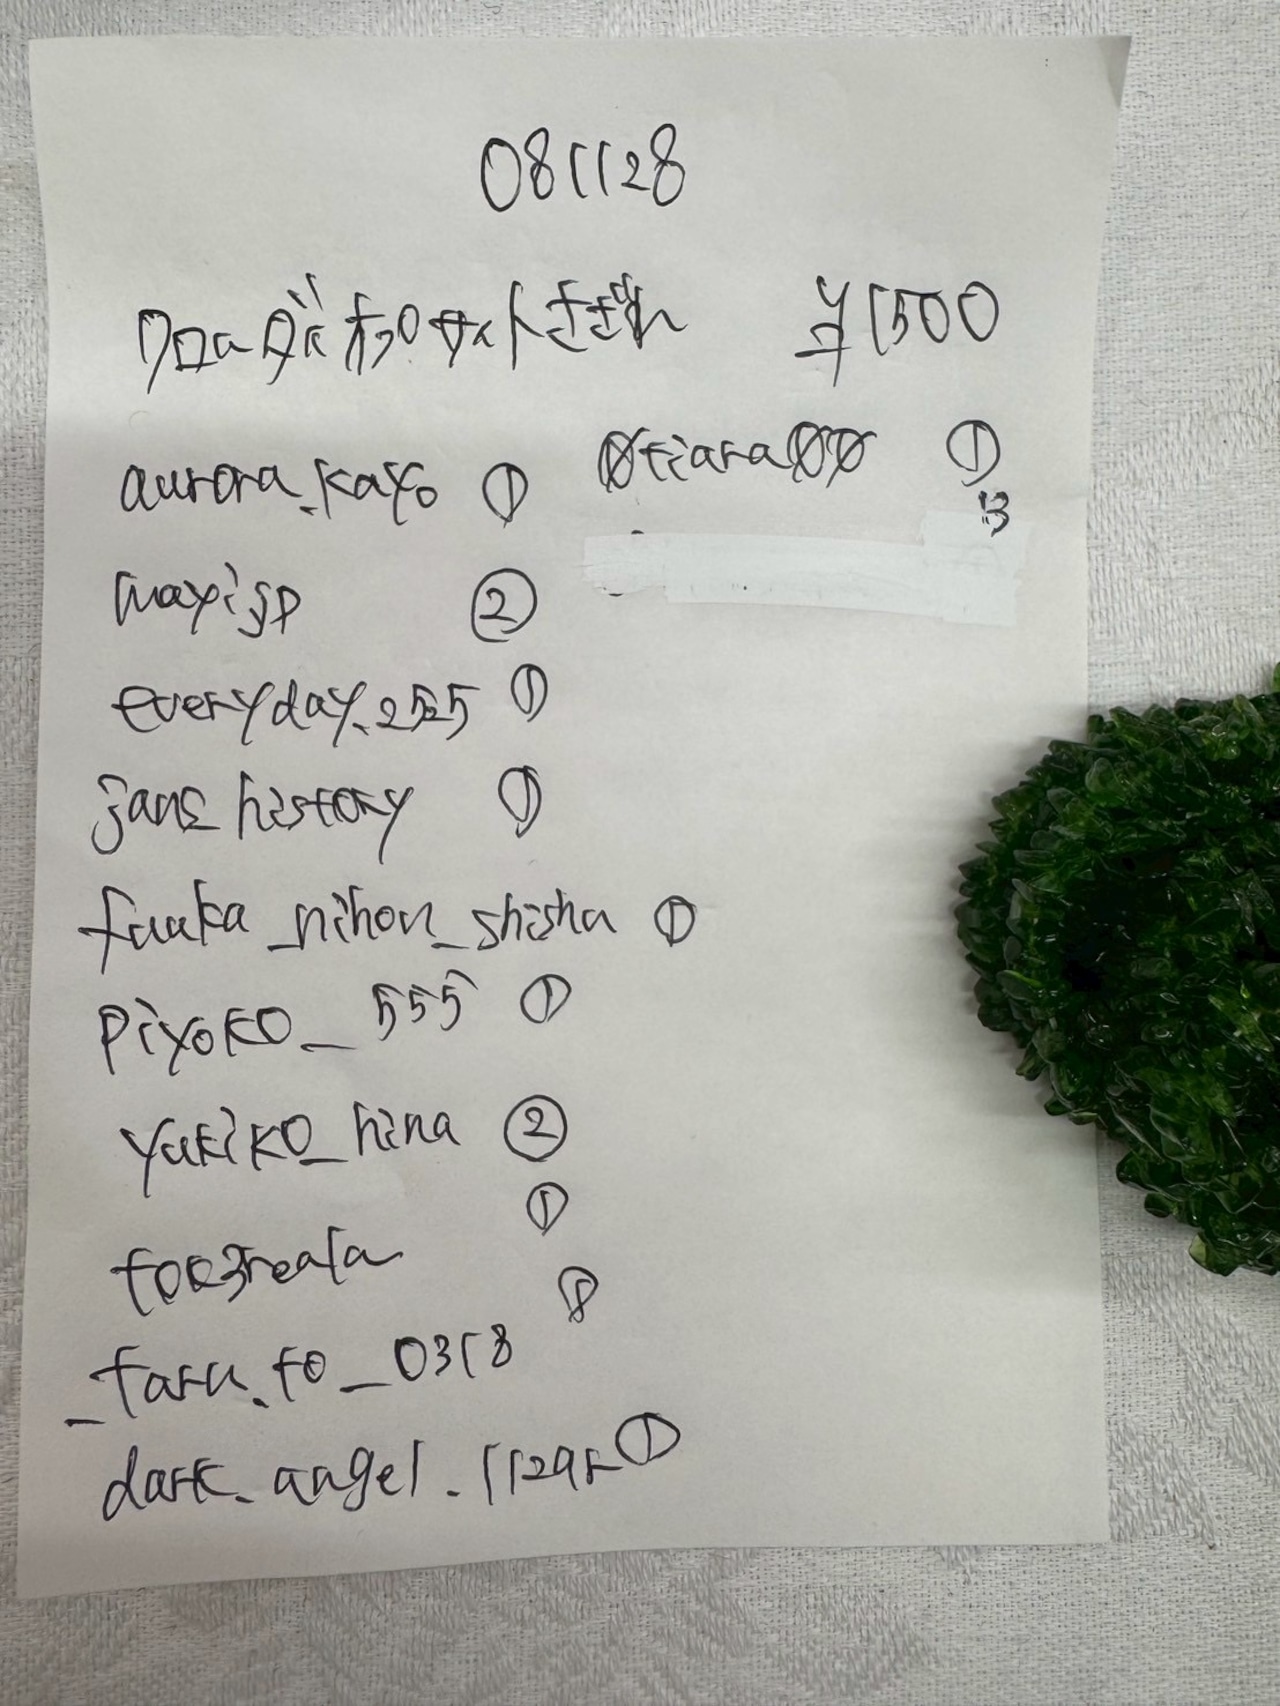 081128
クロムダイオプサイトさざれ ¥1500
aurora_kayo ①
mayijp ②
everyday.2525 ①
jans_history ①
fuuka_nihon_shisha ①
piyoko_555 ①
yukiko_hina ②
①
①
_taru.to_0318
dark_angel.1129r ①
0tiara00 ①
13